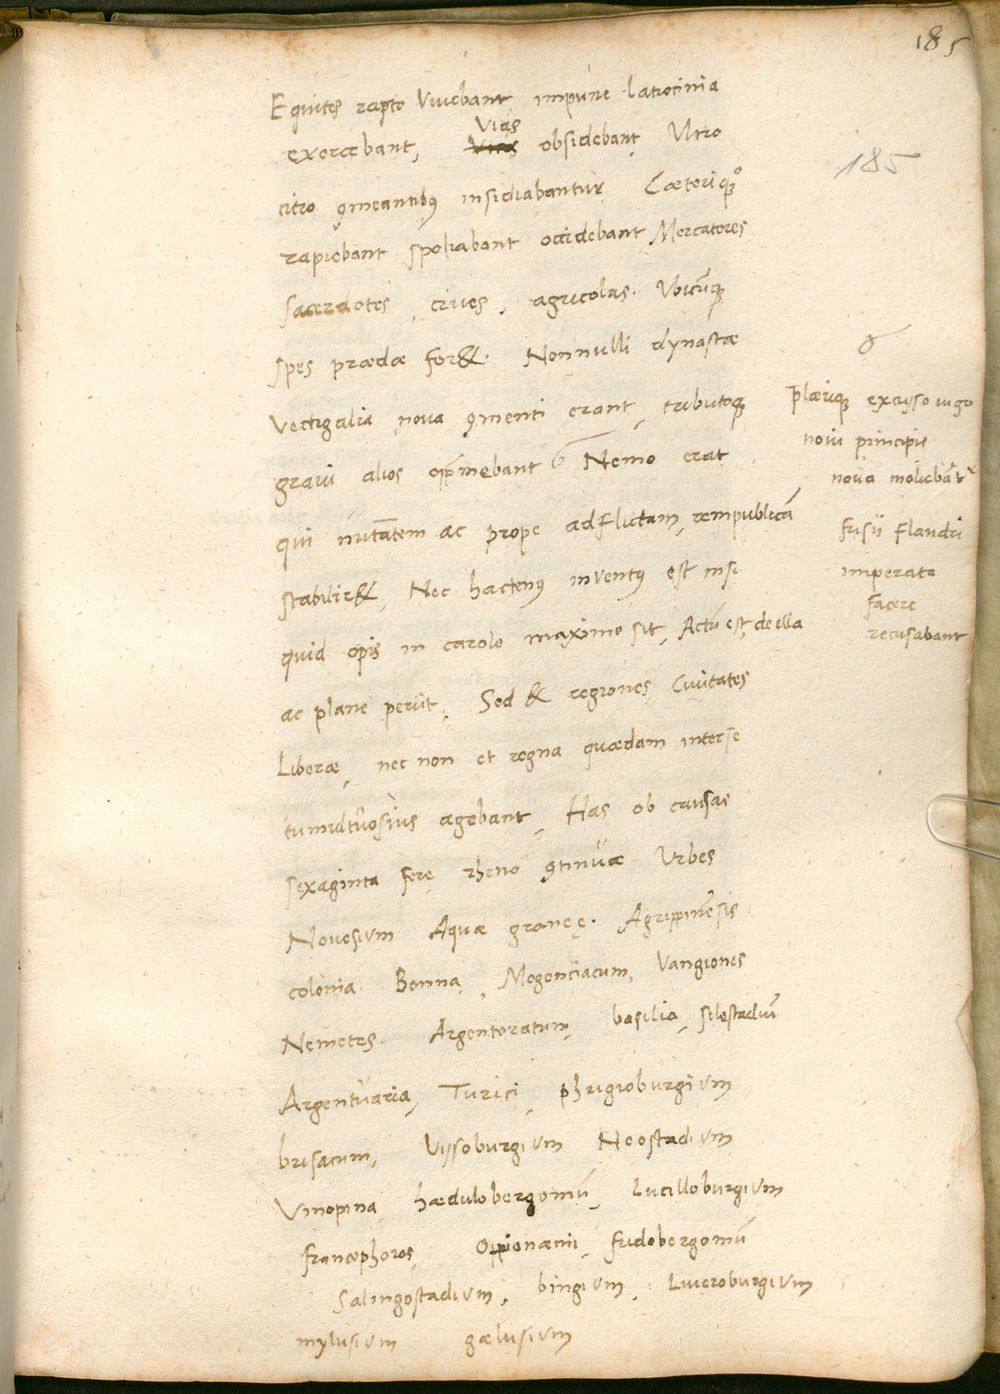 185
Equites rapto vivebant impune latrocinia
exercebant, vias obsidebant Ultro
185
citro ꝯmeantibꝰ insidiabantur Cæteriqꝫ
rapiebant spoliabant occidebant Mercatores
sacerdotes, cives, agricolas. Vbicũqꝫ
spes prædæ for&. Nonnulli dynastæ
vectigalia nova ꝯmenti erant, tributoqꝫ
gravi alios opp̄mebant Nemo erat
qui nutãtem ac prope adflictam, rempublicã
stabilir&, Nec hactenꝰ inventꝰ est nisi
quid opis in carolo maximo sit, Actũ est, de illa
ac plane periit, Sed & regiones Civitates
Liberæ, nec non et regna quædam inter se
tumultuosius agebant, Has ob causas
sexaginta fere rheno ꝯtinuæ Urbes
Novesium Aquæ graneę. Agrippinẽsis
colonia Bonna, Mogonciacum, Vangiones
Nemetes. Argentoratum, basilia, selestadiũ
Argentuaria, Turici, phrigioburgium
brisacum, Vissoburgium Neostadium
Vinopina hædulobergomũ, Lucilloburgium
francophoros, Oppionænii, fridobergomũ
Salingostadium, bingium, Luteroburgium
mylusium gælusium
plæriqꝫ excusso iugo
novi principis
nova moliebãtᷣ
frisii Flandri
imperata
facere
recusabant